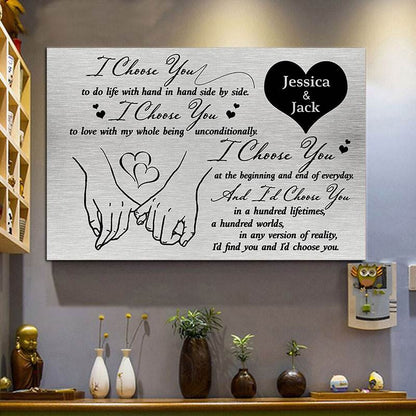 I Choose You
to do life with hand in hand side by side.
I Choose You
to love with my whole being unconditionally.
I Choose You
at the beginning and end of everyday.
And I'd Choose You
in a hundred lifetimes,
a hundred worlds,
in any version of reality,
I'd find you and I'd choose you.
Jessica
&
Jack